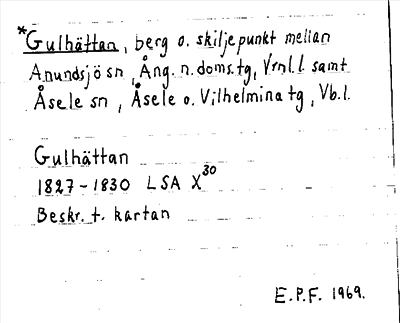 *Gulhättan, berg o. skiljepunkt mellan
Anundsjö sn, Ång. n. doms. tg, Vrnl. l samt
Åsele sn, Åsele o. Vilhelmina tg, Vb. l.
Gulhättan
1827-1830 LSA X30
Beskr. t. kartan
E.P.F. 1969.